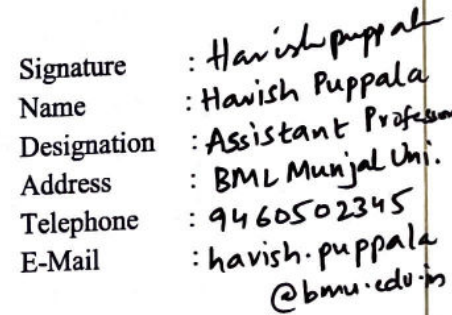 Signature : Harish puppala
Name : Harish Puppala
Designation : Assistant Professor
Address : BML Munjal Uni.
Telephone : 9460502345
E-Mail : harish.puppala
@bmu.edu.in